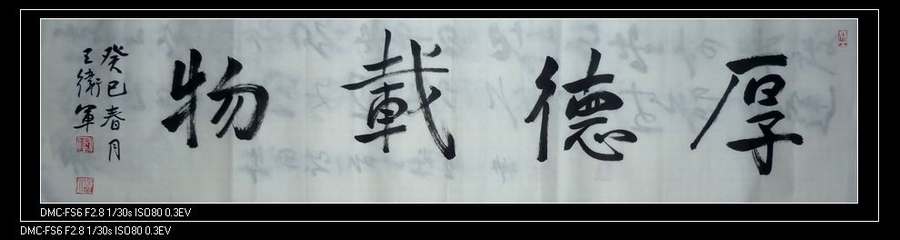 厚德載物
癸巳春月
王衛軍
DMC-FS6 F2.8 1/30s ISO80 0.3EV
DMC-FS6 F2.8 1/30s ISO80 0.3EV